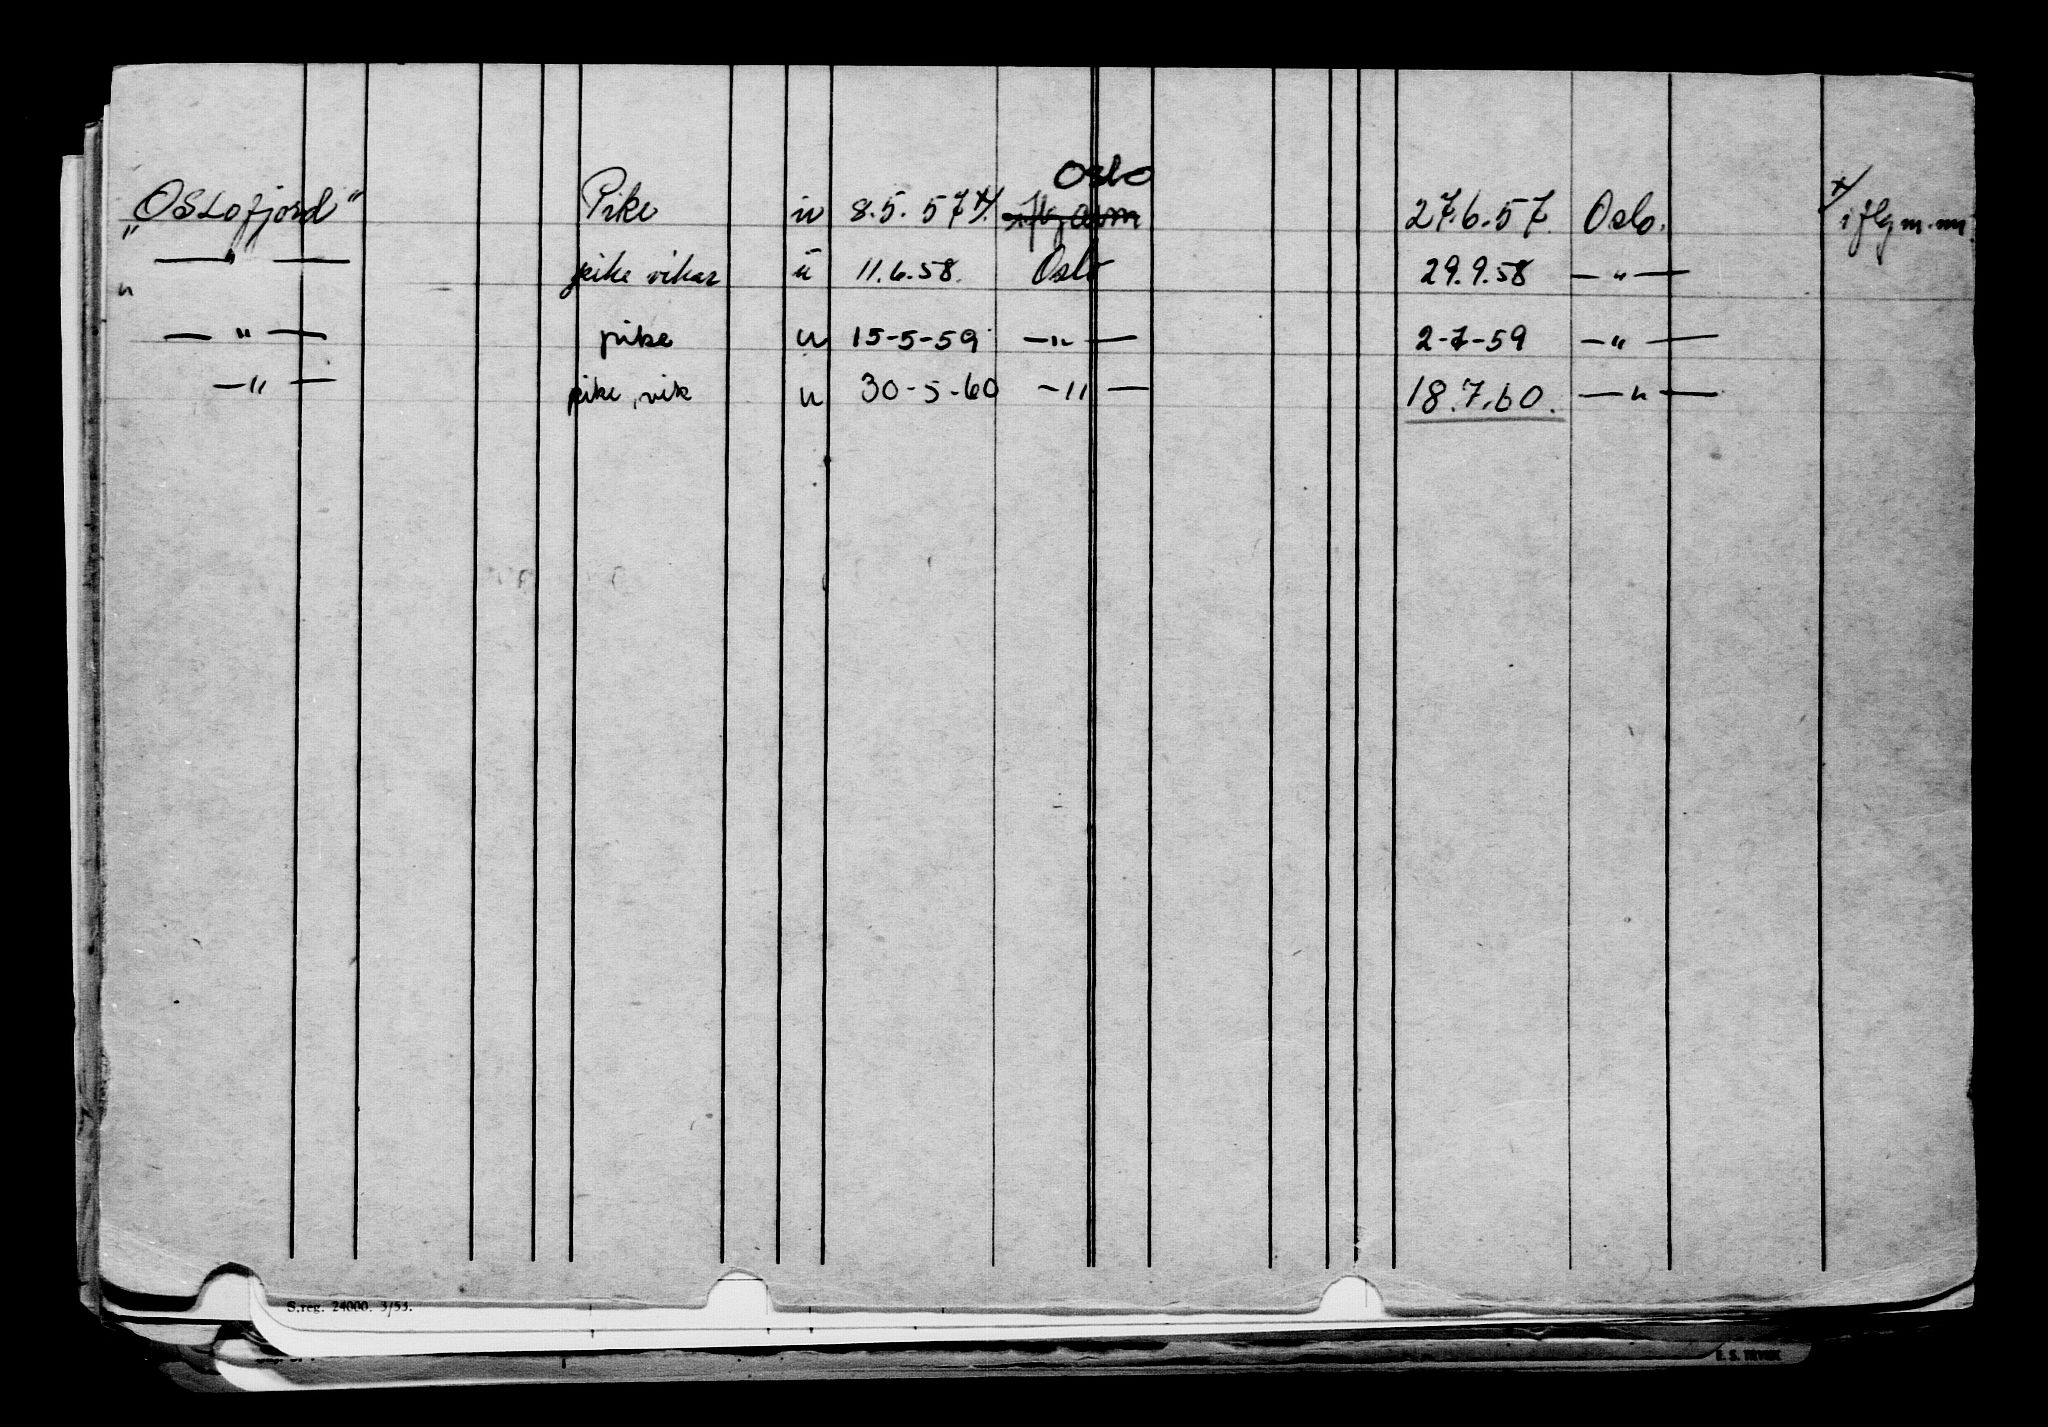 Oslo
"Oslofjord" Pike u 8.5.57 x/. 27.6.57. Oslo. x/ i flg m.m.
— " — pike vikar u 11.6.58. Oslo 29.9.58 — " —
— " — pike u 15-5-59 — " — 2-7-59 — " —
— " — pike, vik u 30-5-60 — " — 18.7.60. — " —
S.reg. 24000. 3/53.